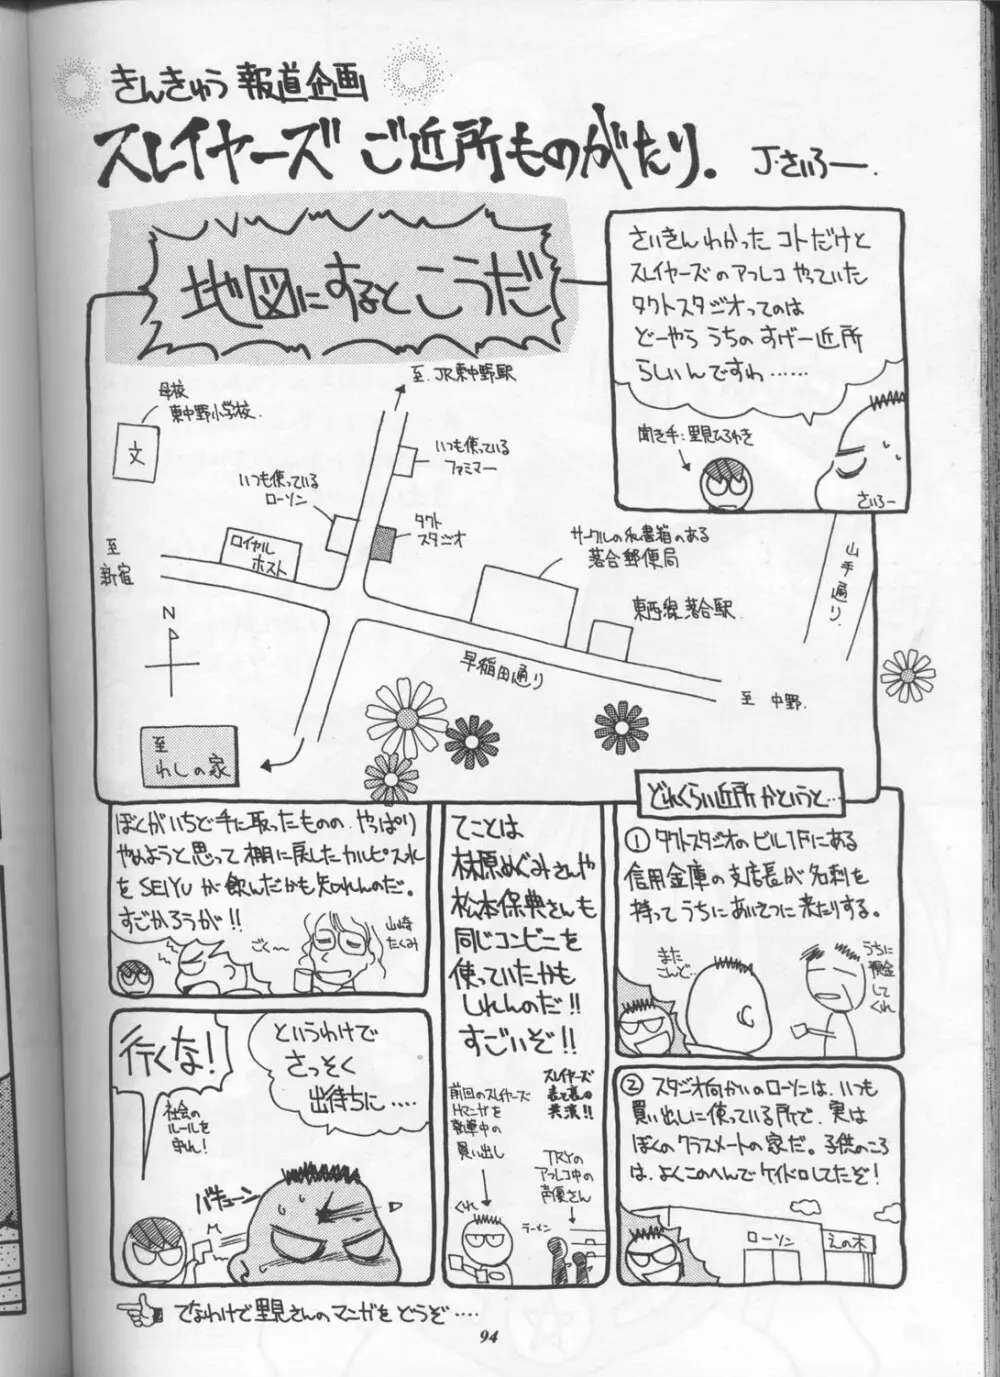 きんきゅう報道企画
スレイヤーズ ご近所ものがたり。
J・さいろー.
地図にするとこうだ
さいきんわかったコトだけど
スレイヤーズのアフレコやっていた
タクトスタジオってのは
どーやらうちのすげー近所
らしいんですわ……
聞き手:里見ひろゆき
さいろー
至.JR東中野駅
母校
東中野小学校.
文
いつも使っている
ファミマー
いつも使っている
ローソン
タクト
スタジオ
ロイヤル
ホスト
サークルの私書箱のある
落合郵便局
東西線落合駅.
山手通り.
至
新宿
N
早稲田通り
至 中野.
至
わしの家
どれくらい近所かというと…
①タクトスタジオのビル1Fにある
信用金庫の支店長が名刺を
持ってうちにあいさつに来たりする。
また
こんど…
うちに
預金
してくれ
②スタジオ向かいのローソンは、いつも
買い出しに使っている所で、実は
ぼくのクラスメートの家だ。子供のころ
は、よくこのへんでケイドロしてたぞ!
ローソン
えの木
てことは
林原めぐみさんや
松本保典さんも
同じコンビニを
使っていたかも
しれんのだ!!
すごいぞ!!
スレイヤーズ
表と裏の
共演!!
前回のスレイヤーズ
Hマンガを
執筆中の
買い出し
TRYの
アフレコ中の
声優さん
くれ
ラーメン
ぼくがいちど手に取ったものの、やっぱり
やめようと思って棚に戻したカルピス水
をSEIYUが飲んだかも知れんのだ。
すごかろうが!!
ごく〜
山崎
たくみ
というわけで
さっそく
出待ちに….
行くな!
社会の
ルールを
守れ!
バキューン
てなわけで里見さんのマンガをどうぞ….
94